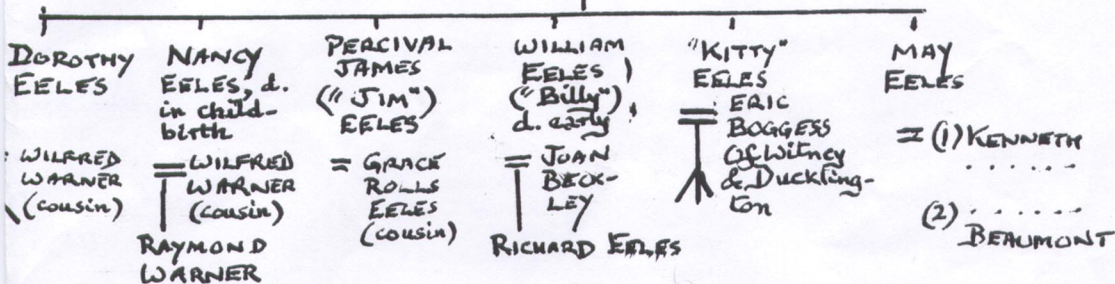 DOROTHY
EELES
WILFRED
WARNER
(cousin)
NANCY
EELES, d.
in child-
birth
= WILFRED
WARNER
(cousin)
RAYMOND
WARNER
PERCIVAL
JAMES
("JIM")
EELES
= GRACE
ROLLS
EELES
(cousin)
WILLIAM
EELES
("Billy")
d. early
= JOAN
BECK-
LEY
RICHARD EELES
"KITTY"
EELES
= ERIC
BOGGESS
of Witney
& Duckling-
ton
MAY
EELES
= (1) KENNETH
......
(2) ......
BEAUMONT